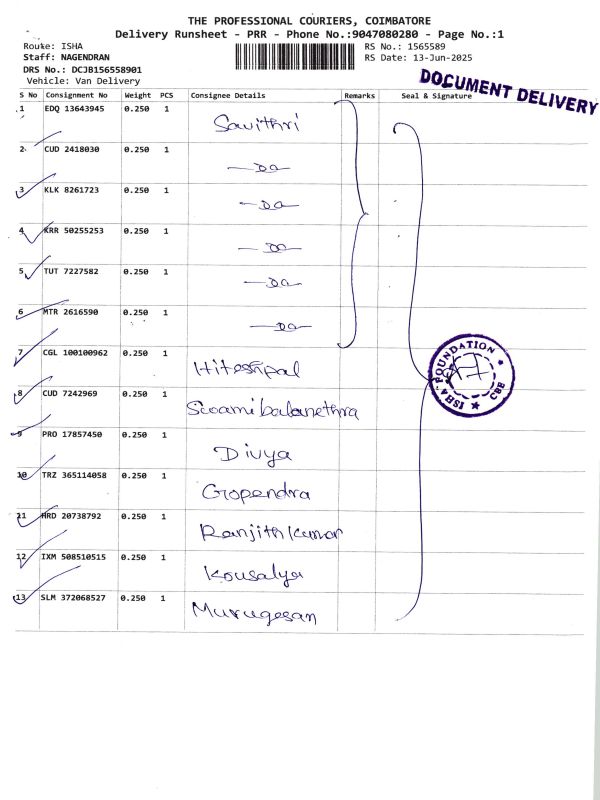 THE PROFESSIONAL COURIERS, COIMBATORE
Delivery Runsheet - PRR - Phone No.:9047080280 - Page No.:1
Route: ISHA
RS No.: 1565589
Staff: NAGENDRAN
RS Date: 13-Jun-2025
DRS No.: DCJB156558901
Vehicle: Van Delivery
DOCUMENT DELIVERY
S No Consignment No Weight PCS Consignee Details Remarks Seal & Signature
1 EDQ 13643945 0.250 1 Savithri
2 CUD 2418030 0.250 1 —Do—
3 KLK 8261723 0.250 1 —Do—
4 KRR 50255253 0.250 1 —Do—
5 TUT 7227582 0.250 1 —Do—
6 MTR 2616590 0.250 1 —Do—
7 CGL 100100962 0.250 1 Hiteshpal
8 CUD 7242969 0.250 1 Swamibalanethra
9 PRO 17857450 0.250 1 Divya
10 TRZ 365114058 0.250 1 Gopendra
11 HRD 20738792 0.250 1 Ranjith Kumar
12 IXM 508510515 0.250 1 Kousalya
13 SLM 372068527 0.250 1 Murugesan
ISHA FOUNDATION ★ CBE ★